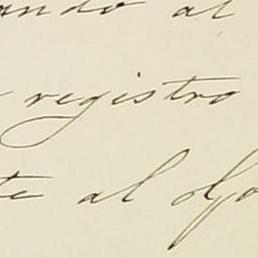 ando al
registro
te al